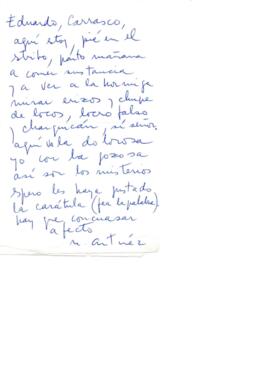 Eduardo, Carrasco,
aquí estoy, pié en el
stribo, parto mañana
a comer sustancia
y a ver a la hormiga
mirar erizos y chupe
de locos, locro falso
y charquicán, si señor,
aquí va la dolorosa
yo con la gozosa
así son los misterios
spero les haya gustado
la carátula (fea la palabra)
hay que concuasar
afecto
n. antúnez